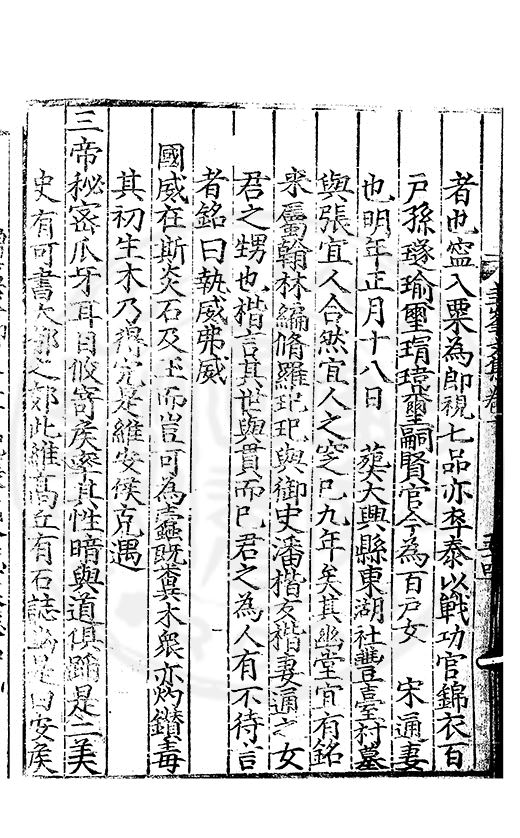 者也寍入粟為郎視七品亦卒泰以戰功官錦衣百
戸孫瑑瑜璽瑁瑋璽嗣賢官今為百戸女 宋通妻
也明年正月十八日 葬大興縣東湖社豐臺村墓
與張宜人合然宜人之窆巳九年矣其幽堂宜有銘
來屬翰林編脩羅玘玘與御史潘楷友楷妻通之女
君之甥也楷言其世與貫而巳君之為人有不待言
者銘曰執威弗威
國威在斯炎石及玉而豈可為蠧既糞木衆亦灼鑽毒
其初生木乃得完是維安矦克遇
三帝秘密爪牙耳目攸寄矦率真性暗與道俱蹈是二美
史有可書 郭之郊此維高丘有石誌幽是曰安矦